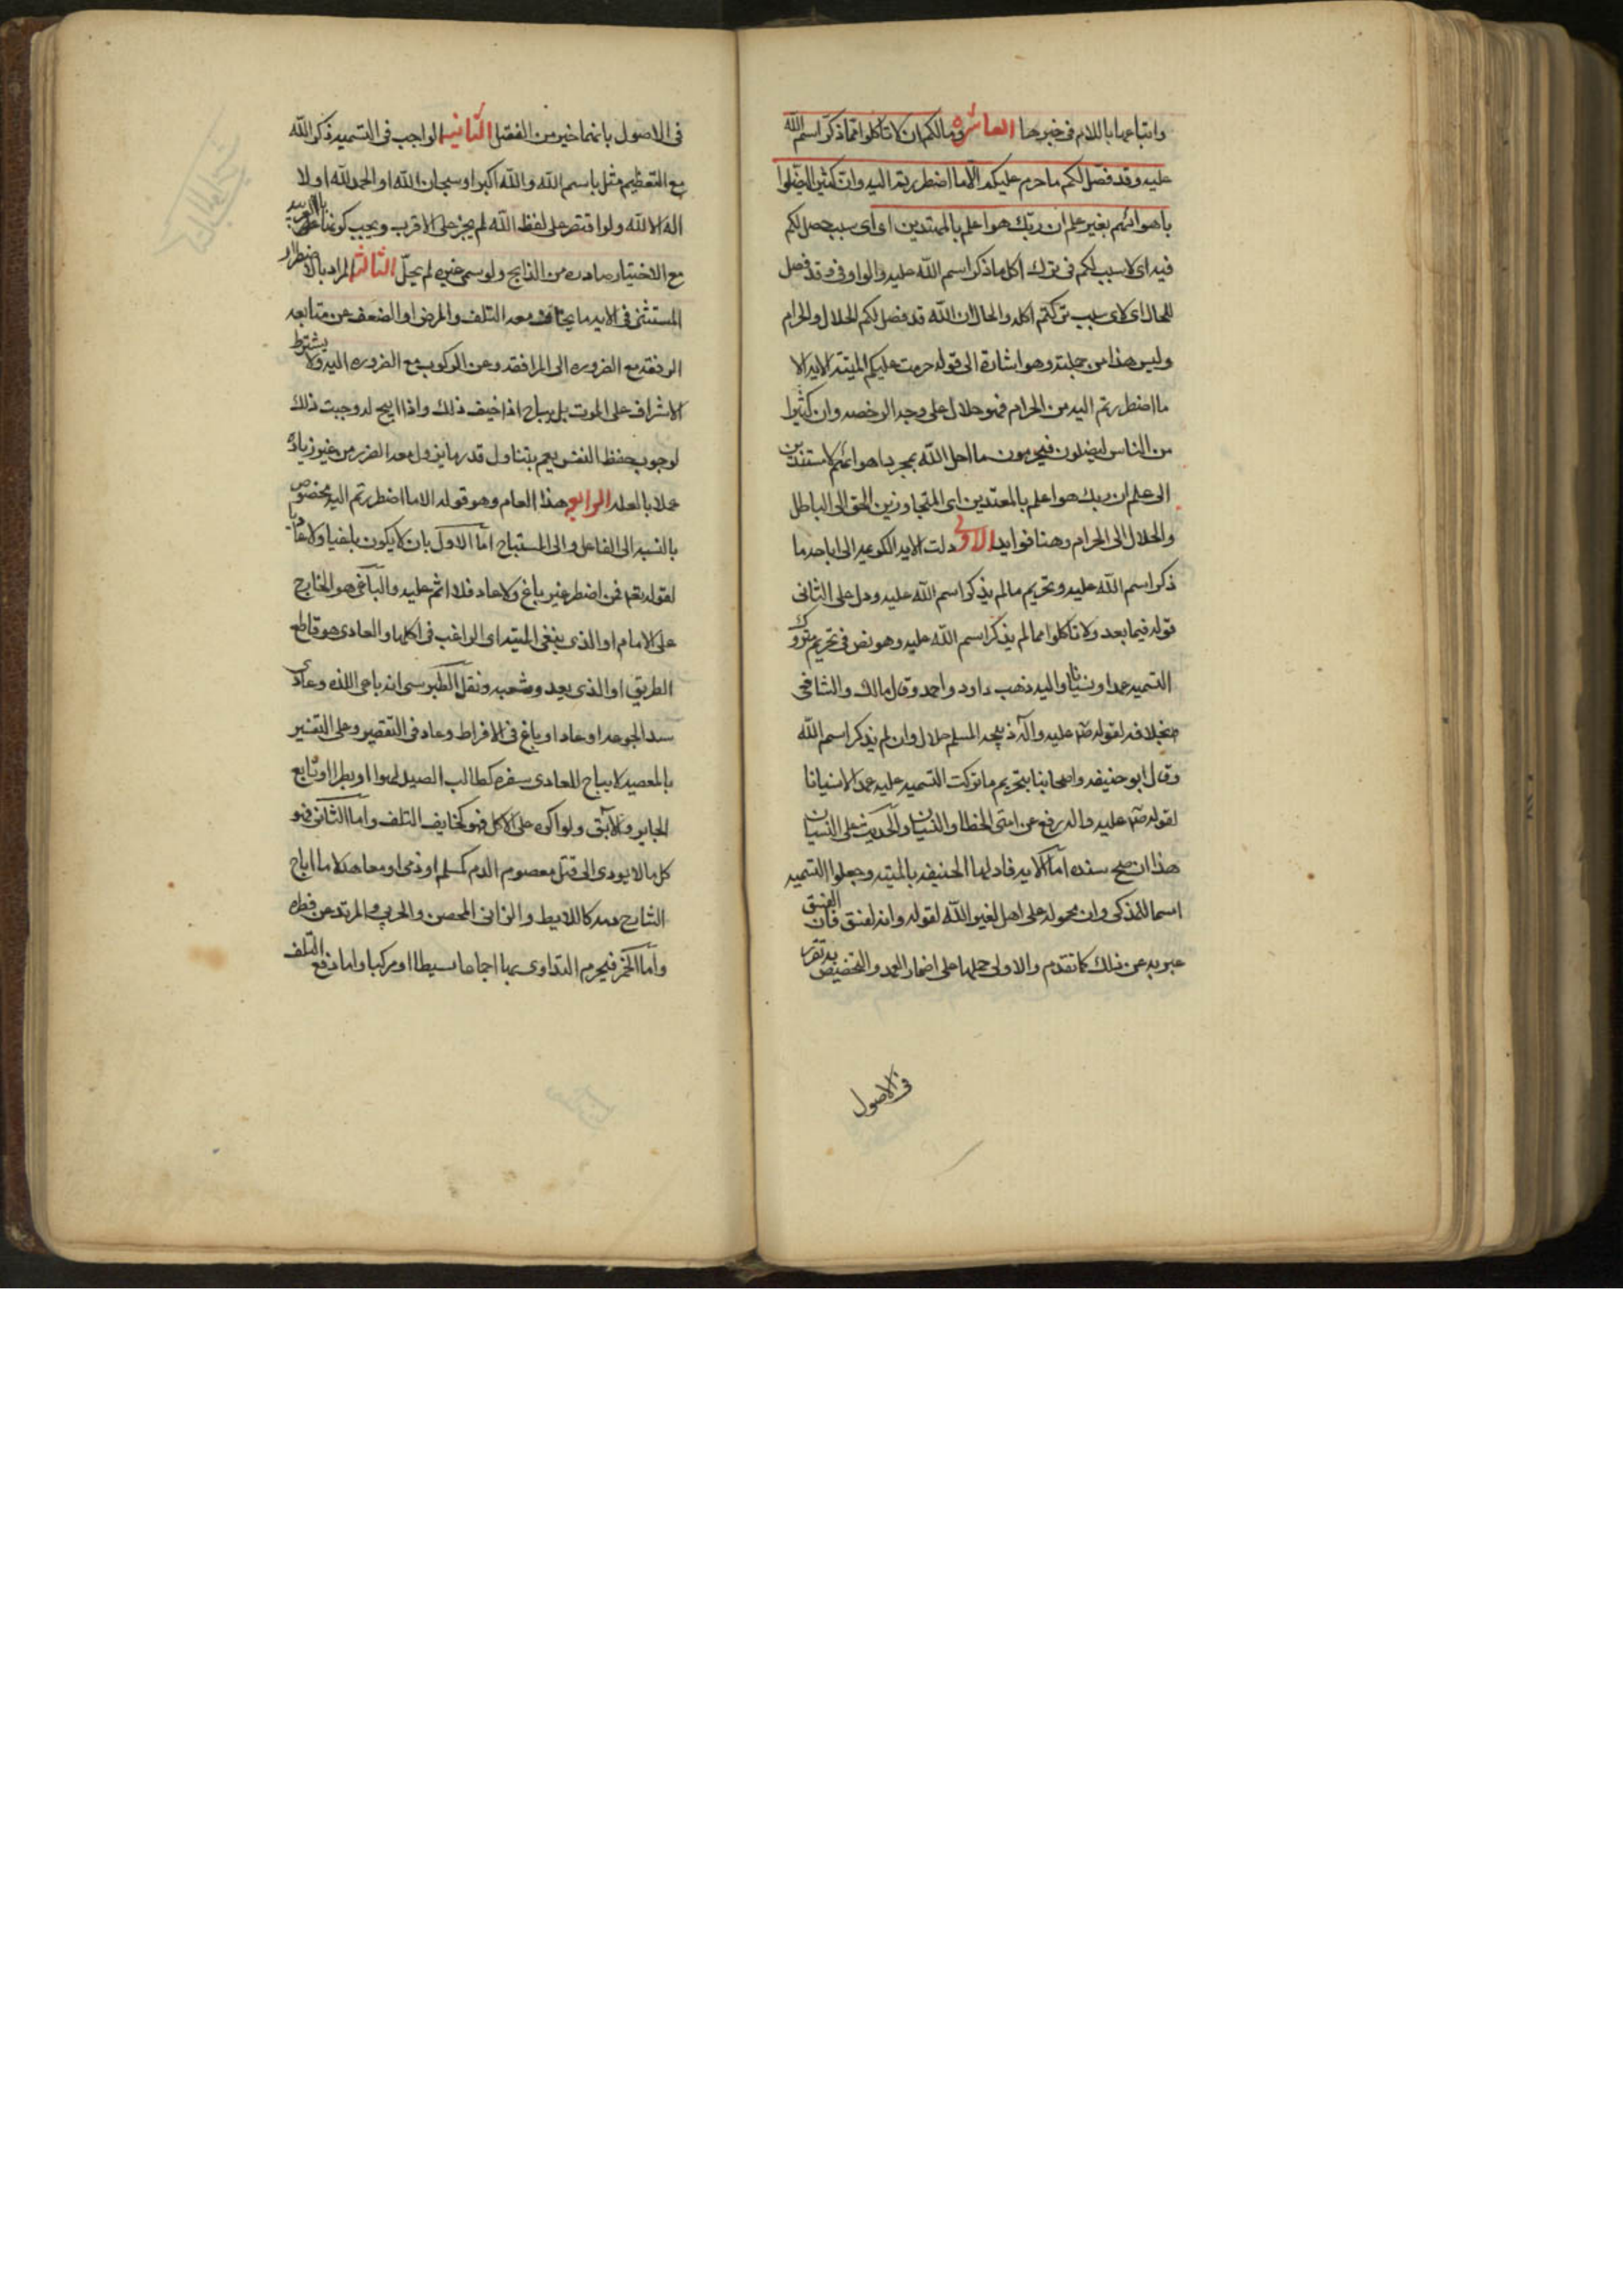 واتباعها باللام فى خبرها العاشرة ومالكم ان لا تاكلوا مما ذكر اسم الله
عليه وقد فصل لكم ما حرم عليكم الا ما اضطررتم اليه وان كثيرا ليضلوا
باهوائهم بغير علم ان ربك هو اعلم بالمهتدين اى اى سبب حصل لكم
فيه اى لا سبب لكم فى ترك اكل ما ذكر اسم الله عليه والواو فى وقد فصل
للحال اى لاى سبب تركتم اكله والحال ان الله قد فصل لكم الحلال والحرام
وليس هذا من جملته وهو اشارة الى قوله حرمت عليكم الميتة الايه الا
ما اضطررتم اليه من الحرام فهو حلال على وجه الرخصه وان كثيرا
من الناس ليضلون فيحرمون ما احل الله بمجرد اهوائهم لا مستندين
الى علم ان ربك هو اعلم بالمعتدين اى المتجاوزين الحق الى الباطل
والحلال الى الحرام وهنا فوايد الاولى دلت الايه الكريمه الى اباحه ما
ذكر اسم الله عليه وتحريم ما لم يذكر اسم الله عليه ودل على الثانى
قوله فيما بعد ولا تاكلوا مما لم يذكر اسم الله عليه وهو نص فى تحريم متروك
التسميه عمدا او نسيانا واليه ذهب داود واحمد وقال مالك والشافعى
بخلافه لقوله صم عليه وآله ذبيحه المسلم حلال وان لم يذكر اسم الله
وقال ابو حنيفه واصحابنا بتحريم ما تركت التسميه عليه عمدا لا نسيانا
لقوله صم عليه واله رفع عن امتى الخطا والنسيان والحديث على النسيان
هذا ان صح سنده اما الايه فاولها الحنيفه بالميته وجعلوا التسميه
اسما للذكى وان محموله على اهل لغير الله لقوله وانه لفسق فان الفسق
عبر به عن ذلك كما تقدم والاولى حملها على اضمار العمد والتخصيص به تقرر
فى الاصول
فى الاصول بانهما خير من النقل الثانيه الواجب فى التسميه ذكر الله
مع التعظيم مثل باسم الله والله اكبر او سبحان الله او الحمد لله او لا
اله الا الله ولو اقتصر على لفظ الله لم يجز على الاقرب ويجب كونها بالعربيه
مع الاختيار صادره من الذابح ولو سمى غيره لم يحل الثالثه المراد بالاضطرار
المستثنى فى الايه ما يخاف معه التلف والمرض او الضعف عن متابعه
الرفقه مع الضروره الى المرافقه وعن الركوب مع الضروره اليه ولا يشترط
الاشراف على الموت بل يباح اذا خيف ذلك واذا ابيح له وجبت ذلك
لوجوب حفظ النفس نعم يتناول قدر ما يزول معه الضرر من غير زياده
عملا بالعله الرابعه هذا العام وهو قوله الا ما اضطررتم اليه مخصوص
بالنسبه الى الفاعل والى المستباح اما الاول بان لا يكون باغيا ولا عاديا
لقوله تعم فمن اضطر غير باغ ولا عاد فلا اثم عليه والباغى هو الخارج
على الامام او الذى يبغى الميته اى الراغب فى اكلها والعادى هو قاطع
الطريق او الذى يعد وشعبه ونقل الطبرسى انه باغى اللذه وعادى
سد الجوعه او عاد او باغ فى الافراط وعاد فى التقصير وعلى التفسير
بالمعصيه لا يباح للعادى بسفره كطالب الصيد لهوا او بطرا او تابع
الجاير والآبق ولو اكره على الاكل فهو كخايف التلف واما الثانى فهو
كل ما لا يودى الى قتل معصوم الدم كمسلم او ذمى او معاهد لا ما اباح
الشارع دمه كاللايط والزانى المحصن والحربى والمرتد عن فطره
واما الخمر فيحرم التداوى بها اجماعا بسيطا او مركبا واما دفع التلف